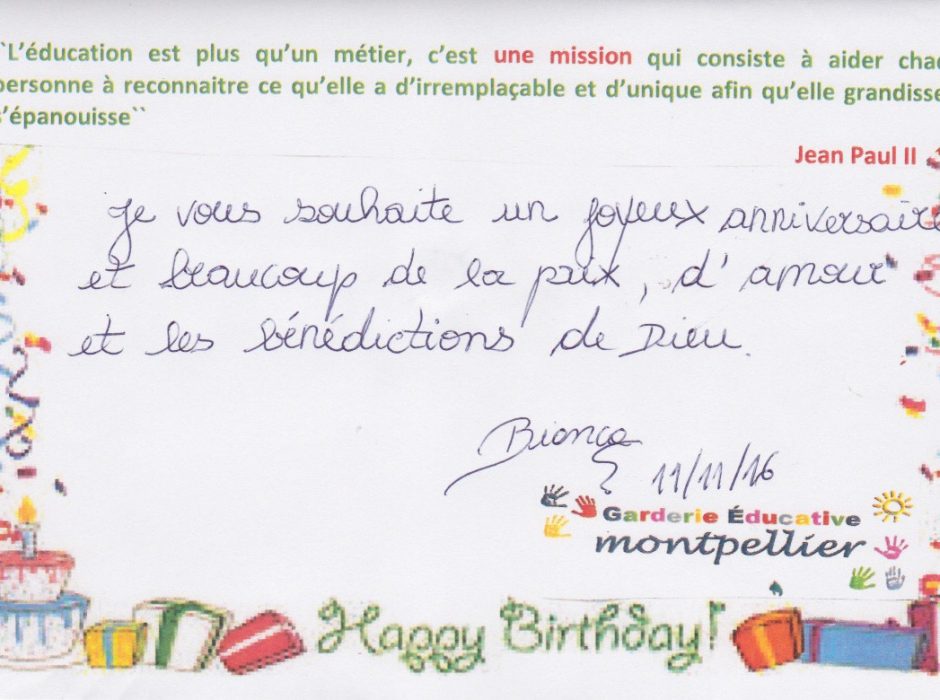 ``L'éducation est plus qu'un métier, c'est une mission qui consiste à aider chac
personne à reconnaitre ce qu'elle a d'irremplaçable et d'unique afin qu'elle grandisse
s'épanouisse``
Jean Paul II
Je vous souhaite un joyeux anniversaire
et beaucoup de la paix, d'amour
et les bénédictions de Dieu.
Bianca
11/11/16
Garderie Éducative
montpellier
Happy Birthday!